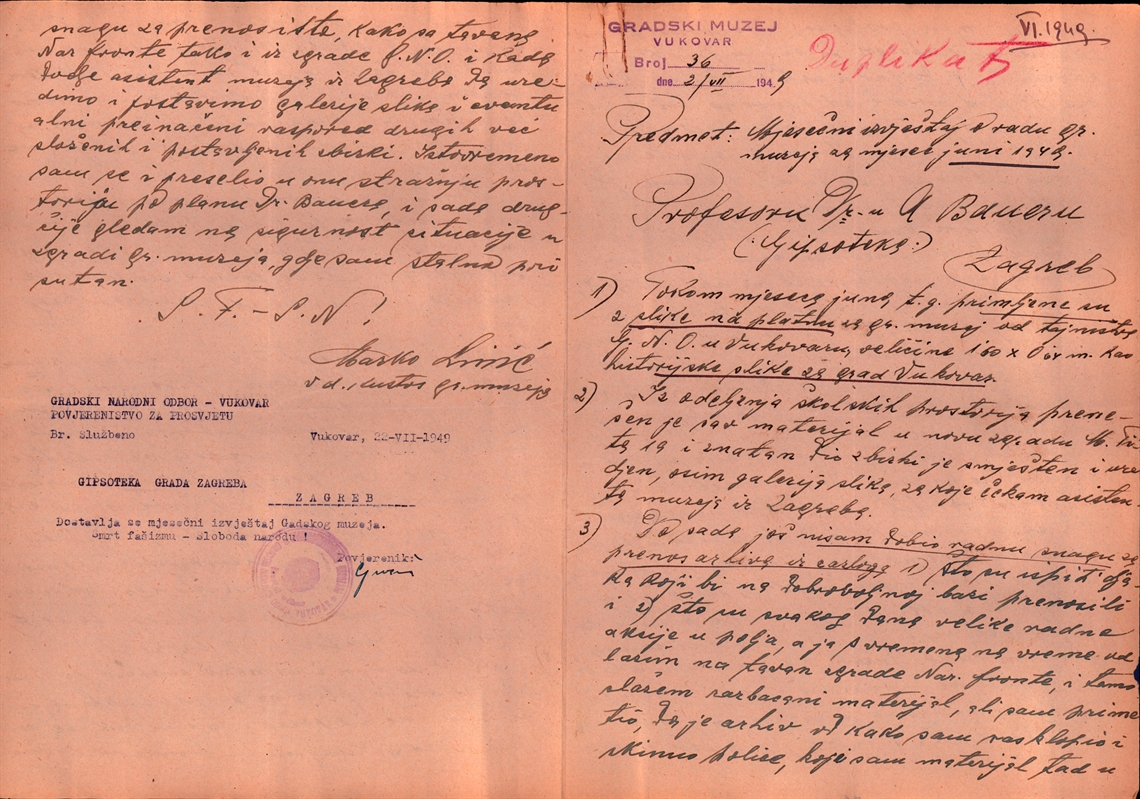 GRADSKI MUZEJ
VUKOVAR
Broj 36
dne. 2/VII 1949
VI. 1949.
Duplikat
Predmet: Mjesečni izvještaj o radu gr.
muzeja za mjesec juni 1949.
Profesoru Dr-u A Baueru
(Gipsoteka)
Zagreb
1) Tokom mjeseca juna t.g. primljene su
2 slike na platnu za gr. muzej od tajništva
G. N. O. u Vukovaru, veličine 160 x m. kao
historijske slike za grad Vukovar.
2) Iz odeljenja školskih prostorija prene-
šen je sav materijal u novu zgradu M. Ti-
ta 19 i znatan dio zbirki je smješten i ure-
djen, osim galerija slika, za koje čekam asisten-
ta muzeja iz Zagreba.
3) Do sada još nisam dobio radnu snagu za
prenos arhiva iz razloga 1) što su ispiti dja-
ka koji bi na dobrovoljnoj bazi prenosili
i 2) što su svakog dana velike radne
akcije u polja, a ja s vremena na vreme od
lazim na tavan zgrade Nar. fronte, i tamo
slažem razbacani materijal, ali sam prime
tio, da je arhiv od kako sam rasklopio i
skinuo police, koje sam materijal tad u
snagu za prenos iste, kako sa tavana
Nar fronte tako i iz zgrade G.N.O. i kada
dodje asistent muzeja iz Zagreba da ure-
dimo i postavimo galerije slika i eventu
alni preinačeni raspored drugih već
složenih i postavljenih zbirki. Istovremeno
sam se i preselio u onu stražnju pros-
toriju po planu Dr. Bauera, i sada drug-
čije gledam na sigurnost situacije u
zgradi gr. muzeja, gdje sam stalno pri
sutan.
S. F. - S. N!
Marko
v.d. kustos gr. muzeja
GRADSKI NARODNI ODBOR - VUKOVAR
POVJERENISTVO ZA PROSVJETU
Br. Službeno
Vukovar, 22-VII-1949
GIPSOTEKA GRADA ZAGREBA
ZAGREB
Dostavlja se mjesečni izvještaj Gadskog muzeja.
Smrt fašizmu - Sloboda narodu !
Povjerenik: